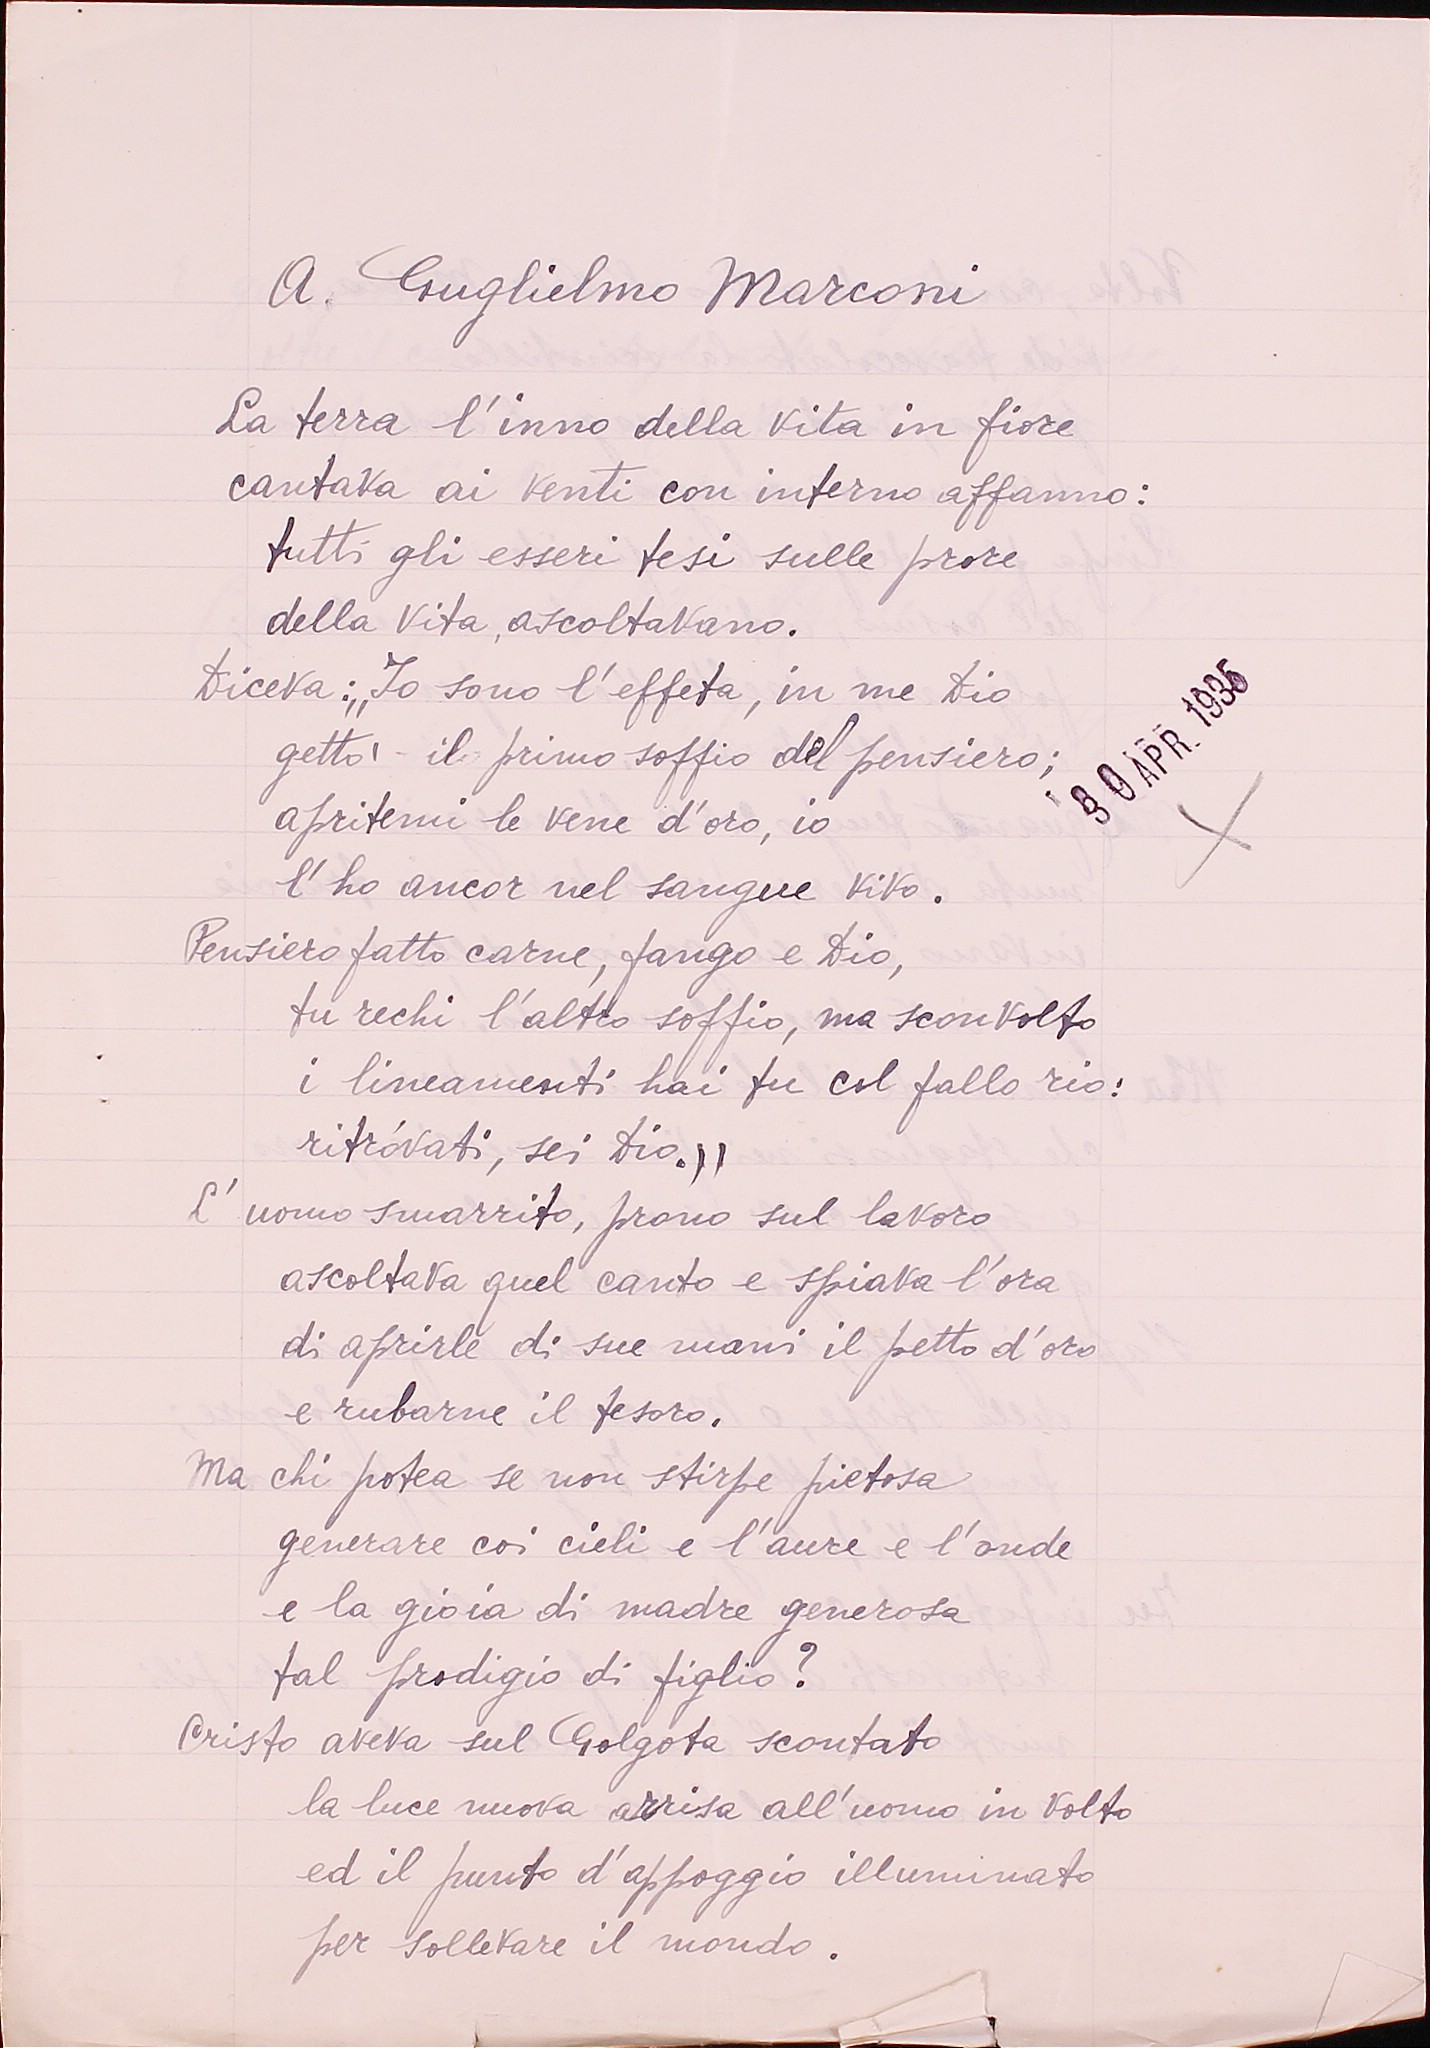 A. Guglielmo Marconi
La terra l'inno della vita in fiore
cantava ai venti con interno affanno:
tutti gli esseri tesi sulle prore
della vita, ascoltavano.
Diceva: „Io sono l'effeta, in me Dio
gettò - il primo soffio del pensiero;
apritemi le vene d'oro, io
l'ho ancor nel sangue vivo.
Pensiero fatto carne, fango e Dio,
tu rechi l'altro soffio, ma sconvolto
i lineamenti hai tu col fallo rio:
ritróvati, sei Dio.”
L'uomo smarrito, prono sul lavoro
ascoltava quel canto e spiava l'ora
di aprirle di sue mani il petto d'oro
e rubarne il tesoro.
Ma chi potea se non stirpe pietosa
generare coi cieli e l'aure e l'onde
e la gioia di madre generosa
tal prodigio di figlio?
Cristo aveva sul Golgota scontato
la luce nuova arrisa all'uomo in volto
ed il punto d'appoggio illuminato
per sollevare il mondo.
30 APR. 1935